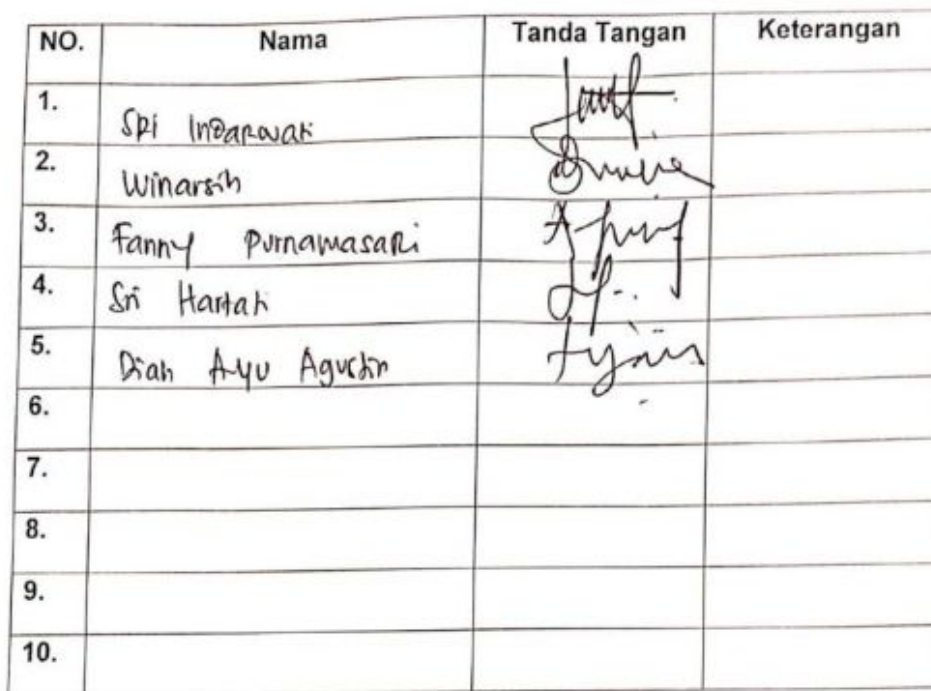 NO. Nama Tanda Tangan Keterangan
1. SRi Indarwati
2. Winarsih
3. Fanny PurnamasaRi
4. Sri Hartati
5. Diah Ayu Agustin
6.
7.
8.
9.
10.